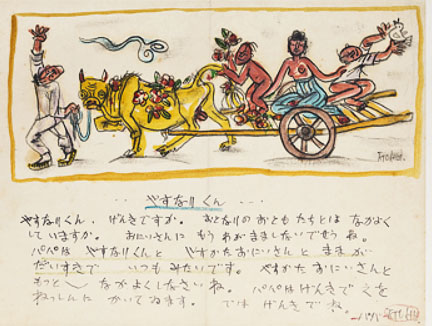 ‥やすなりくん…
やすなりくん、げんきですか。 おとなりのおともたちとは なかよく
していますか。 おにいさんに もう わがまましないでせう ね。
パパは やすなりくんと やすかたおにいさんと ままが
だいすきで いつも みたいです。 やすかた おにいさんと
もっと〱 なかよくしなさいね。 パパはげんきで ゑを
ねっしんに かいてゐます。 では げんきでね。
パパ